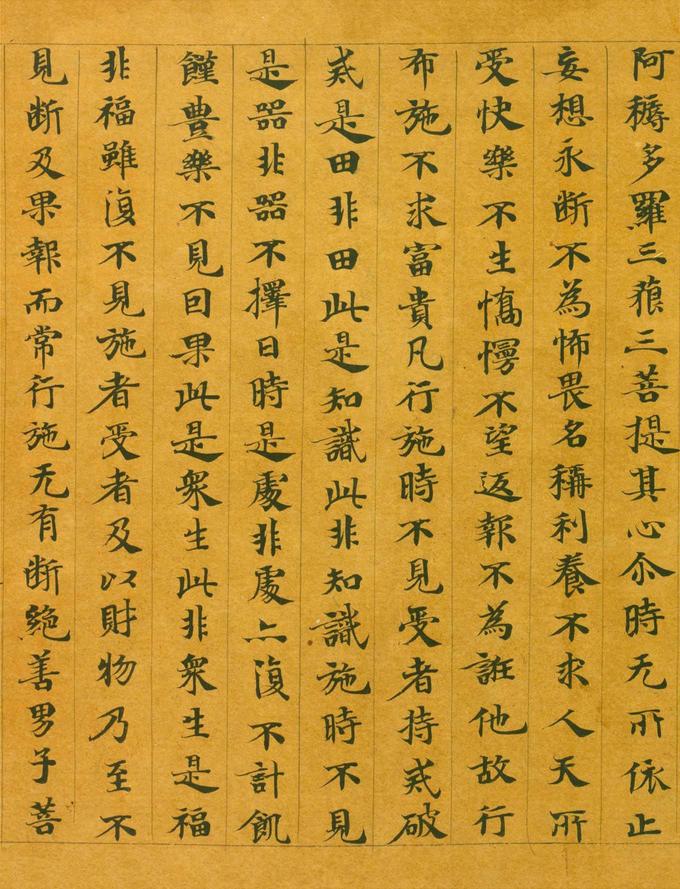 阿耨多羅三藐三菩提其心尒時无所依止
妄想永断不為怖畏名稱利養不求人天所
受快樂不生憍慢不望返報不為誑他故行
布施不求富貴凡行施時不見受者持戒破
戒是田非田此是知識此非知識施時不見
是器非器不擇日時是處非處亦復不計飢
饉豊樂不見因果此是衆生此非衆生是福
非福雖復不見施者受者及以財物乃至不
見断及果報而常行施无有断絶善男子菩